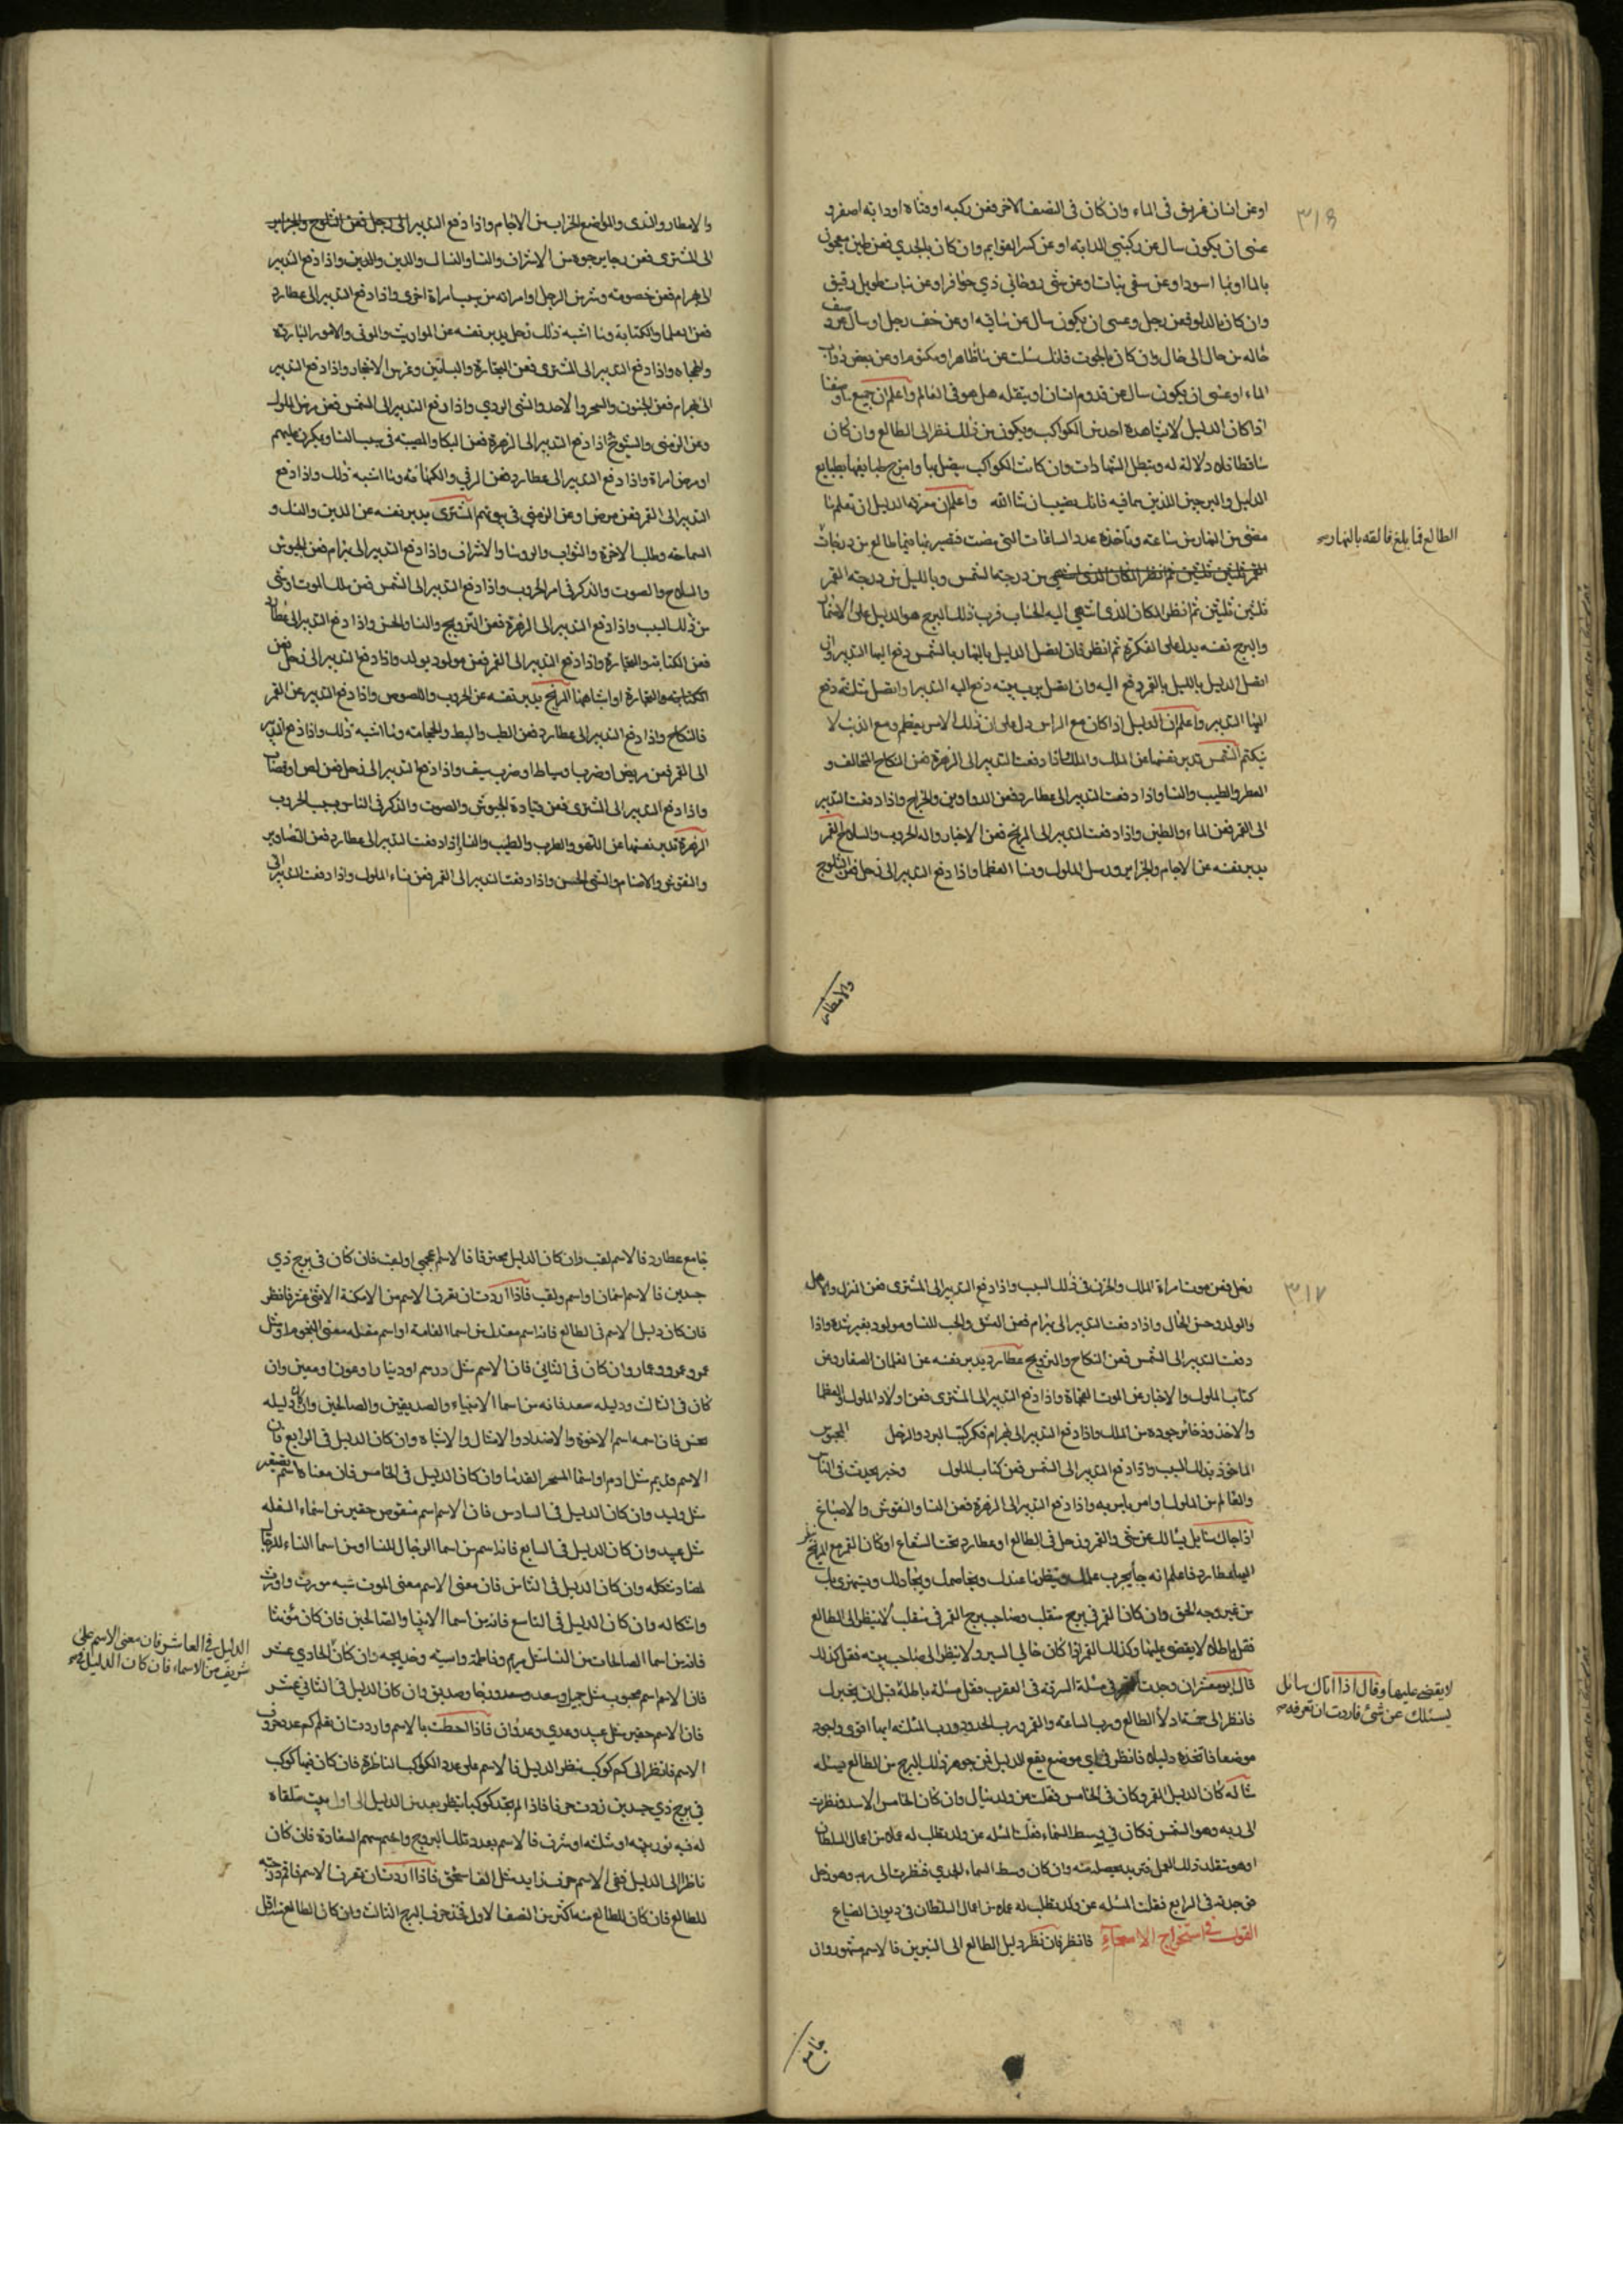 ٣١٦
او عن انسان غريق في الماء وان كان في النصف الاخر فعن ركبه او فتاه او دابه اصفر و
عسى ان يكون سال عن ركبتي الدابه او عن كسر القوايم وان كان بالجدي فعن طين معجون
بالماء او اسود او عن سقي نبات او عن شي روحاني ذي حوافر او عن نبات طويل رقيق
وان كان بالدلو فعن رجل وعسى ان يكون سال عن ساقيه او عن خف رجل او سال عن
حاله من حال الى حال وان كان بالحوت فانك سئلت عن ما ظاهر او مكتوم او عن بعض دواب
الماء او عسى ان يكون سال عن قدوم انسان او يقله هل هو في العالم واعلم ان جميع
اذا كان الدليل لا يشاهده احد من الكواكب ويكون من ذلك نظر الى الطالع وان كان
ساقطا فلا دلالة له وتبطل الشهادات وان كانت الكواكب يتصل بها وامزج طبايعها بطبايع
الدليل والبرجين اللذين هما فيه فانك تصيب ان شا الله واعلم ان معرفة الدليل ان تعلم ما
مضى من النهار من ساعه وتاخذ عدد الساعات التي مضت فتصير مما بينها طالع من درجات
الطالع فما بلغ فالقه بالنهار
من درجة الشمس وبالليل من درجة القمر
ثلثين ثلثين ثم انظر المكان الذي انتهى اليه الحساب فرب ذلك البرج هو الدليل على الانسان
والبرج نفسه يدل على الفكرة ثم انظر فان اتصل الدليل بالنهار بالشمس دفع اليها التدبير وان
اتصل الدليل بالليل بالقمر دفع اليه وان اتصل برب بيته دفع اليه التدبير او اتصل بثلثه دفع
اليها التدبير واعلم ان الدليل اذا كان مع الراس دل على ان ذلك الامر يعظم ومع الذنب لا
يكتم الشمس تدبر نفسها عن الملك والملك واذا دفعت التدبير الى الزهرة فمن النكاح المخالف و
العطر والطيب والنسا واذا دفعت التدبير الى عطارد فمن الدواوين والخراج واذا دفعت التدبير
الى القمر فعن الماء والطين واذا دفعت التدبير الى المريخ فعن الاخبار والحروب والسلاح القمر
يدبر نفسه عن الاجام والجزاير ورسل الملوك ونسا العظما واذا دفع التدبير الى زحل فعن الثلوج
والامطار
والامطار والندى والمواضع الخراب من الاجام واذا دفع التدبير الى
الى المشتري فعن رجا يرجوه من الاشراف والنسا والنسال والدين والدين واذا دفع التدبير
الى بهرام فعن خصومه وشر من الرجل او امراته من سبب امراة اخرى واذا دفع التدبير الى عطارد
فعن العلما والكتابة وما اشبه ذلك زحل يدبر نفسه عن المواريث والموتى والامور الباردة
والمياه واذا دفع التدبير الى المشتري فعن العقارة والبساتين وغرس الاشجار واذا دفع التدبير
الى بهرام فعن الجنون والسحر والاحد والشي الردي واذا دفع التدبير الى الشمس فعن مرض الملوك
وعن الزمنى والشيوخ اذا دفع التدبير الى الزهرة فعن البكا والمصيبه في سبب النسا ويكون عليهم
او مرض امراة واذا دفع التدبير الى عطارد فعن الرقي والكهانة وما اشبه ذلك واذا دفع
التدبير الى القمر فعن مرض او عن الزمنى في بيوتهم المشتري يدبر نفسه عن الدين والنسك و
السماحه وطلب الاخرة والثواب والروسا والاشراف واذا دفع التدبير الى بهرام فعن الجيوش
والسلاح والصوت والذكر في امر الحروب واذا دفع التدبير الى الشمس فعن ملك الموت او شي
من ذلك السبب واذا دفع التدبير الى الزهرة فعن التزويج والنسا والحسن واذا دفع التدبير الى عطارد
فعن الكتابة والتجارة واذا دفع التدبير الى القمر فعن مولود يولد واذا دفع التدبير الى زحل فعن
الكتابة والتجارة او اشباهها المريخ يدبر نفسه عن الحروب واللصوص واذا دفع التدبير عن القمر
فالنكاح واذا دفع التدبير الى عطارد فعن الطب والبط والحجامة وما اشبه ذلك واذا دفع التدبير
الى القمر فعن مريض او ضرب سياط او ضرب سيف واذا دفع التدبير الى زحل فعن لص او قصاب
واذا دفع التدبير الى المشتري فعن قيادة الجيوش والصوت والذكر في الناس بسبب الحروب
الزهرة تدبر نفسها عن اللهو والطرب والطيب والنسا اذا دفعت التدبير الى عطارد فعن التصاوير
والنقوش والاصنام والشي الحسن واذا دفعت التدبير الى القمر فعن نساء الملوك واذا دفعت التدبير الى
٣١٧
زحل فعن موت امراة الملك والحزن في ذلك السبب واذا دفع التدبير الى المشتري فعن المنزل والاهل
والولد وحسن الحال واذا دفعت التدبير الى بهرام فعن العشق والحب للنسا ومولود بغير رشدة واذا
دفعت التدبير الى الشمس فعن النكاح والتزويج عطارد يدبر نفسه عن الغلمان الصغار وعن
كتاب الملوك والاخبار عن الموت الفجاة واذا دفع التدبير الى المشتري فعن اولاد الملوك والعظما
والاخذ وذخائر موجوده من الملك واذا دفع التدبير الى بهرام فكركتب البرد والرجل المحبوس
الماخوذ بذلك السبب واذا دفع التدبير الى الشمس فعن كتاب الملوك وخبر يحدث في الناس
والعالم من الملوك او امر يامر به واذا دفع التدبير الى الزهرة فعن النسا والنقوش والاصباغ
اذا جاك سائل يسالك عن شي والقمر وزحل في الطالع او عطارد تحت الشعاع او كان القمر مع المريخ
عطارد فاعلم انه جا يجرب علمك وينظر ما عندك ويخاصمك ويجادلك ويستهزي بك
من غير وجه الحق وان كان القمر في برج منقلب وصاحب برج القمر في منقلب لا ينظر الى الطالع
فقل باطلا لا يقضى عليها وكذلك القمر اذا كان خالي السير ولا ينظر الى صاحب بيته فقل كذلك
لا يقضى عليها وقال اذا اتاك سائل
يسئلك عن شئ فاردت ان تعرفه
قال ابو معشر ان وجدت القمر في مسئلة السرقة في العقرب فقل مسئلة باطلة قبل ان يخبرك
فانظر الى الطالع ورب الساعة والقمر ورب الحدود ورب المثلثه ايها اقوى واجود
موضعا فاتخذه دليلا فانظر في اي موضع يقع الدليل فمن جوهر ذلك البرج من الطالع مسئله
مثاله كان الدليل القمر وكان في الخامس فقلت عن ولد يسال وان كان الخامس الاسد فنظرت
الى ربه وهو الشمس فكان في وسط السماء فقلت المسئله عن ولد يطلب له عملا من اعمال السلطان
او هو متقلد ذلك العمل وان كان وسط السماء الجدي فنظرت الى ربه وهو زحل
فوجدته في الرابع فقلت المسئله عن ولد يطلب له عملا من اعمال السلطان في ديوان الضياع
القول في استخراج الاسماء فانظر فان نظر دليل الطالع الى النيرين فالاسم مشهور وان
جامع
جامع عطارد فالاسم لقب وان كان الدليل محترقا فالاسم عجمي او لقب فان كان في برج ذي
جسدين فالاسم اسمان او اسم ولقب فاذا اردت ان تعرف الاسم من الامكنة الاثني عشر فانظر
فان كان دليل الاسم في الطالع فانه اسم معتدل من اسما العامة او اسم مقبله معنى النجوم او مثل
عمر وعمرو وعمار وان كان في الثاني فان الاسم مثل درهم او دينار او عون او معين وان
كان في الثالث ودليله سعد فانه من اسما الانبياء والصديقين والصالحين وان كان دليله
نحس فان اسمه اسم الاخوة والاضداد والامثال والاشباه وان كان الدليل في الرابع فان
الاسم قديم مثل ادم او اسما الشجر القدما وان كان الدليل في الخامس فان معناه اسم تصغير
مثل وليد وان كان الدليل في السادس فان الاسم اسم منقوص حقير من اسماء السفله
مثل عبيد وان كان الدليل في السابع فانه اسم من اسما الرجال للنسا او من اسما النساء للرجال
لتضاد شكله وان كان الدليل في الثامن فان معنى الاسم معنى الموت شبه مورث وارث
واشكاله وان كان الدليل في التاسع فانه من اسما الانبيا والصالحين فان كان مؤنثا
فانه من اسما الصالحات من النسا مثل مريم وفاطمة واسيه وخديجه وان كان الحادي عشر
الدليل في العاشر فان معنى الاسم على
شريف من الاسماء فان كان الدليل في
فان الاسم اسم محبوب مثل جميل وسعد وسعدو ورجا وصديق وان كان الدليل في الثاني عشر
فان الاسم حقير مثل عبيد وعدي وعدوان فاذا احطت بالاسم واردت ان تعلم كم عدد حروف
الاسم فانظر الى كم كوكب ينظر الدليل فالاسم على عدد الكواكب الناظرة فان كان فيها كوكب
في برج ذي جسدين زدت حرفا فاذا لم تجد كوكبا ينظر فعد من الدليل الى اول بيت تلقاه
له فيه نور بيته او مثلثه او شرف فالاسم بعدد تلك البروج واعلم سهم السعادة فان كان
ناظرا الى الدليل ففي الاسم حرف زايد مثل الف اسحق فاذا اردت ان تعرف الاسم فاقم درجة
للطالع فان كان للطالع منه اكثر من النصف الاول فخذ حرف البرج الثالث وان كان الطالع اقل